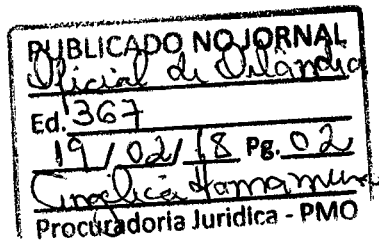 PUBLICADO NO JORNAL
Oficial de Orlândia
Ed. 367
19/02/18 Pg. 02
Angélica
Procuradoria Juridica - PMO